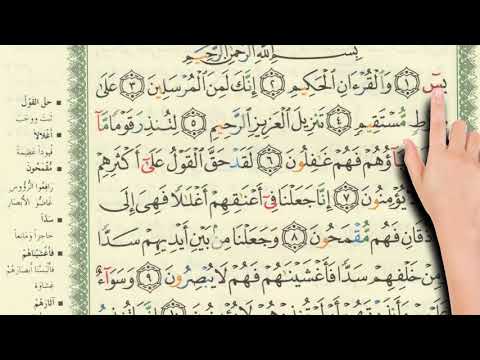 بِسْمِ ٱللَّهِ ٱلرَّحْمَٰنِ ٱلرَّحِيمِ
يسٓ ۝١ وَٱلْقُرْءَانِ ٱلْحَكِيمِ ۝٢ إِنَّكَ لَمِنَ ٱلْمُرْسَلِينَ ۝٣ عَلَىٰ
مُّسْتَقِيمٍ ۝٤ تَنزِيلَ ٱلْعَزِيزِ ٱلرَّحِيمِ ۝٥ لِتُنذِرَ قَوْمًا مَّآ
فَهُمْ غَٰفِلُونَ ۝٦ لَقَدْ حَقَّ ٱلْقَوْلُ عَلَىٰٓ أَكْثَرِهِمْ
يُؤْمِنُونَ ۝٧ إِنَّا جَعَلْنَا فِىٓ أَعْنَٰقِهِمْ أَغْلَٰلًا فَهِىَ إِلَى
فَهُم مُّقْمَحُونَ ۝٨ وَجَعَلْنَا مِنۢ بَيْنِ أَيْدِيهِمْ سَدًّا
مِنْ خَلْفِهِمْ سَدًّا فَأَغْشَيْنَٰهُمْ فَهُمْ لَا يُبْصِرُونَ ۝٩ وَسَوَآءٌ
حَقَّ القَوْلُ
ثبَتَ ووَجَبَ
أَغْلَالًا
قُيُوداً عَظِيمَةً
مُقْمَحُونَ
رَافِعُوا الرُّؤُوسِ
غَاضُّو الأَبْصَارِ
سَدًّا
حَاجِزاً وَمَانِعاً
فَأَغْشَيْنَاهُمْ
فَأَلْبَسْنَا أَبْصَارَهُمْ
غِشَاوَةً
آثَارَهُمْ